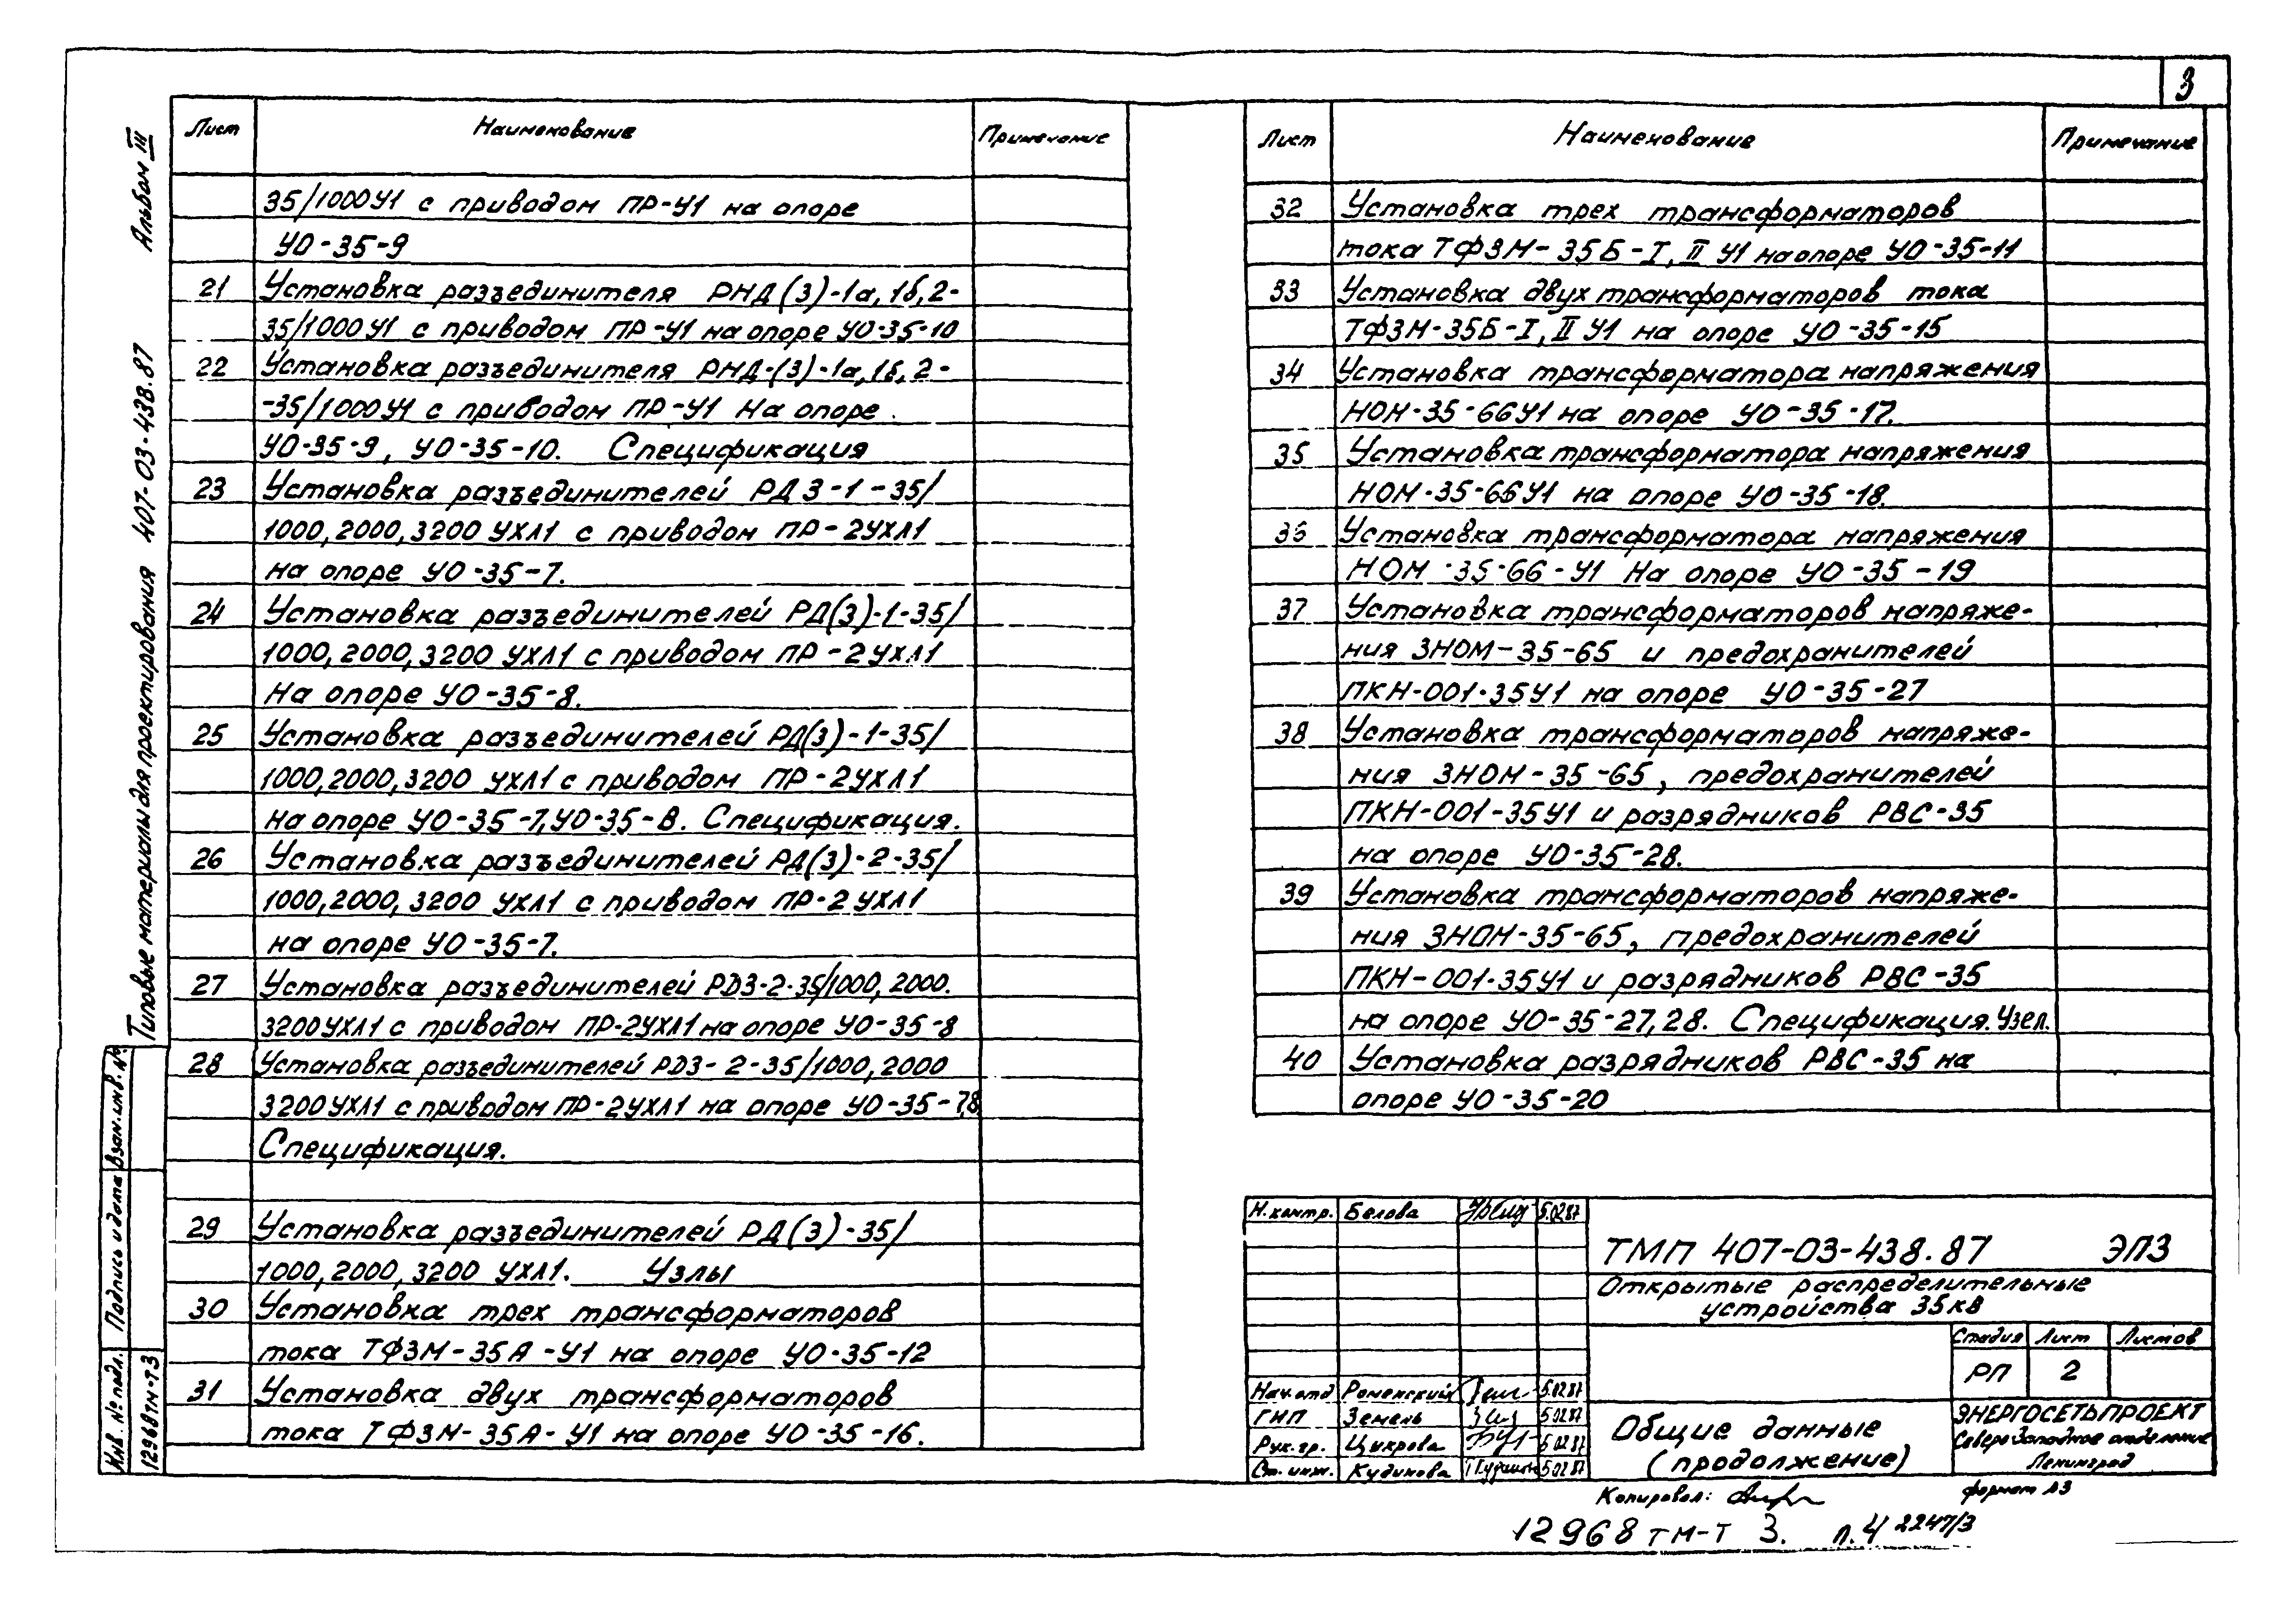 3
Альбом III
Типовые материалы для проектирования 407-03-438.87
Взам. инв. №
Подпись и дата
Инв. № подл.
12968тм-т3
Лист Наименование Примечание
35/1000У1 с приводом ПР-У1 на опоре
УО-35-9
21 Установка разъединителя РНД(З)-1а,1б,2-
35/1000У1 с приводом ПР-У1 на опоре УО-35-10
22 Установка разъединителя РНД-(З)-1а,1б,2-
-35/1000У1 с приводом ПР-У1 На опоре
УО-35-9, УО-35-10. Спецификация
23 Установка разъединителей РДЗ-1-35/
1000,2000,3200 УХЛ1 с приводом ПР-2УХЛ1
на опоре УО-35-7.
24 Установка разъединителей РД(З)-1-35/
1000,2000,3200 УХЛ1 с приводом ПР-2УХЛ1
На опоре УО-35-8.
25 Установка разъединителей РД(З)-1-35/
1000,2000,3200 УХЛ1 с приводом ПР-2УХЛ1
на опоре УО-35-7,УО-35-8. Спецификация.
26 Установка разъединителей РД(З)-2-35/
1000,2000,3200 УХЛ1 с приводом ПР-2УХЛ1
на опоре УО-35-7.
27 Установка разъединителей РДЗ-2-35/1000,2000.
3200УХЛ1 с приводом ПР-2УХЛ1 на опоре УО-35-8
28 Установка разъединителей РДЗ-2-35/1000,2000
3200УХЛ1 с приводом ПР-2УХЛ1 на опоре УО-35-7,8
Спецификация.
29 Установка разъединителей РД(З)-35/
1000,2000,3200 УХЛ1. Узлы
30 Установка трех трансформаторов
тока ТФЗМ-35А-У1 на опоре УО-35-12
31 Установка двух трансформаторов
тока ТФЗМ-35А-У1 на опоре УО-35-16.
Лист Наименование Примечание
32 Установка трех трансформаторов
тока ТФЗМ-35Б-I,II У1 на опоре УО-35-11
33 Установка двух трансформаторов тока
ТФЗМ-35Б-I,II У1 на опоре УО-35-15
34 Установка трансформатора напряжения
НОМ-35-66У1 на опоре УО-35-17.
35 Установка трансформатора напряжения
НОМ-35-66У1 на опоре УО-35-18.
36 Установка трансформатора напряжения
НОМ-35-66-У1 На опоре УО-35-19
37 Установка трансформаторов напряже-
ния ЗНОМ-35-65 и предохранителей
ПКН-001-35У1 на опоре УО-35-27
38 Установка трансформаторов напряже-
ния ЗНОМ-35-65, предохранителей
ПКН-001-35У1 и разрядников РВС-35
на опоре УО-35-28.
39 Установка трансформаторов напряже-
ния ЗНОМ-35-65, предохранителей
ПКН-001-35У1 и разрядников РВС-35
на опоре УО-35-27,28. Спецификация. Узел.
40 Установка разрядников РВС-35 на
опоре УО-35-20
Н. контр. Белова 5.02.87
Нач. отд Роменский 5.02.87
ГИП Земель 5.02.87
Рук. гр. Цукрова 5.02.87
Ст. инж. Кудинова 5.02.87
ТМП 407-03-438.87 ЭП3
Открытые распределительные
устройства 35кв
Стадия Лист Листов
РП 2
Общие данные
(продолжение)
ЭНЕРГОСЕТЬПРОЕКТ
Северо Западное отделение
Ленинград
Копировал:
формат А3
12968тм-т 3. л.4 2247/3